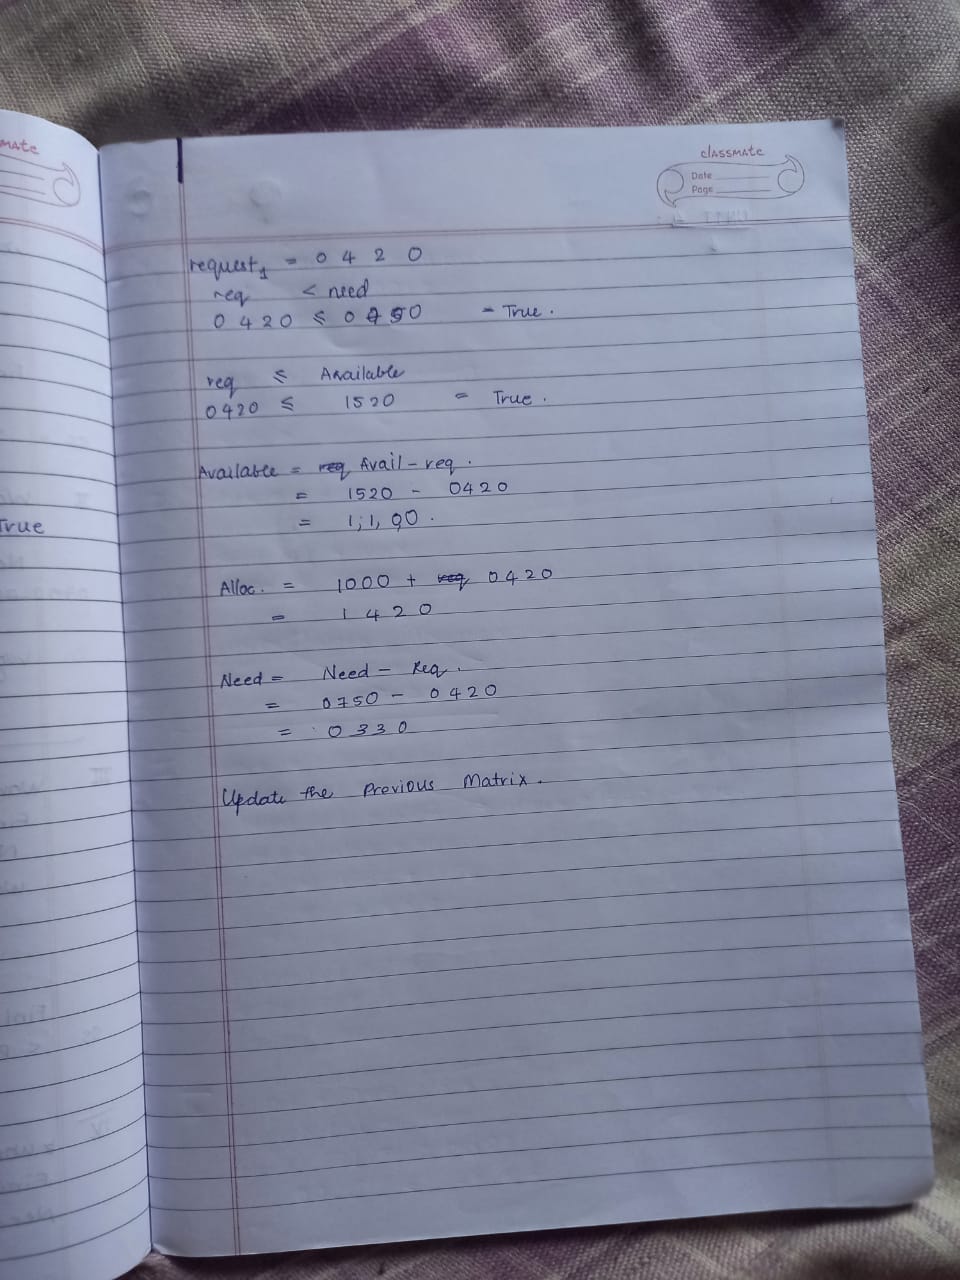 MATE
classmate
Date
Page
request1 = 0 4 2 0
req < need
0 4 2 0 ≤ 0 7 5 0 = True.
req ≤ Available
0420 ≤ 1520 = True.
True
Available = req Avail - req.
= 1520 - 0420
= 1,1,00.
Alloc. = 1000 + req 0420
= 1 4 2 0
Need = Need - Req.
= 0750 - 0420
= 0 3 3 0
Update the Previous Matrix.